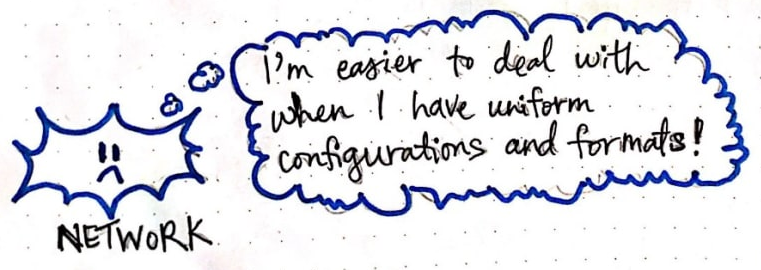 I'm easier to deal with
when I have uniform
configurations and formats!
NETWORK